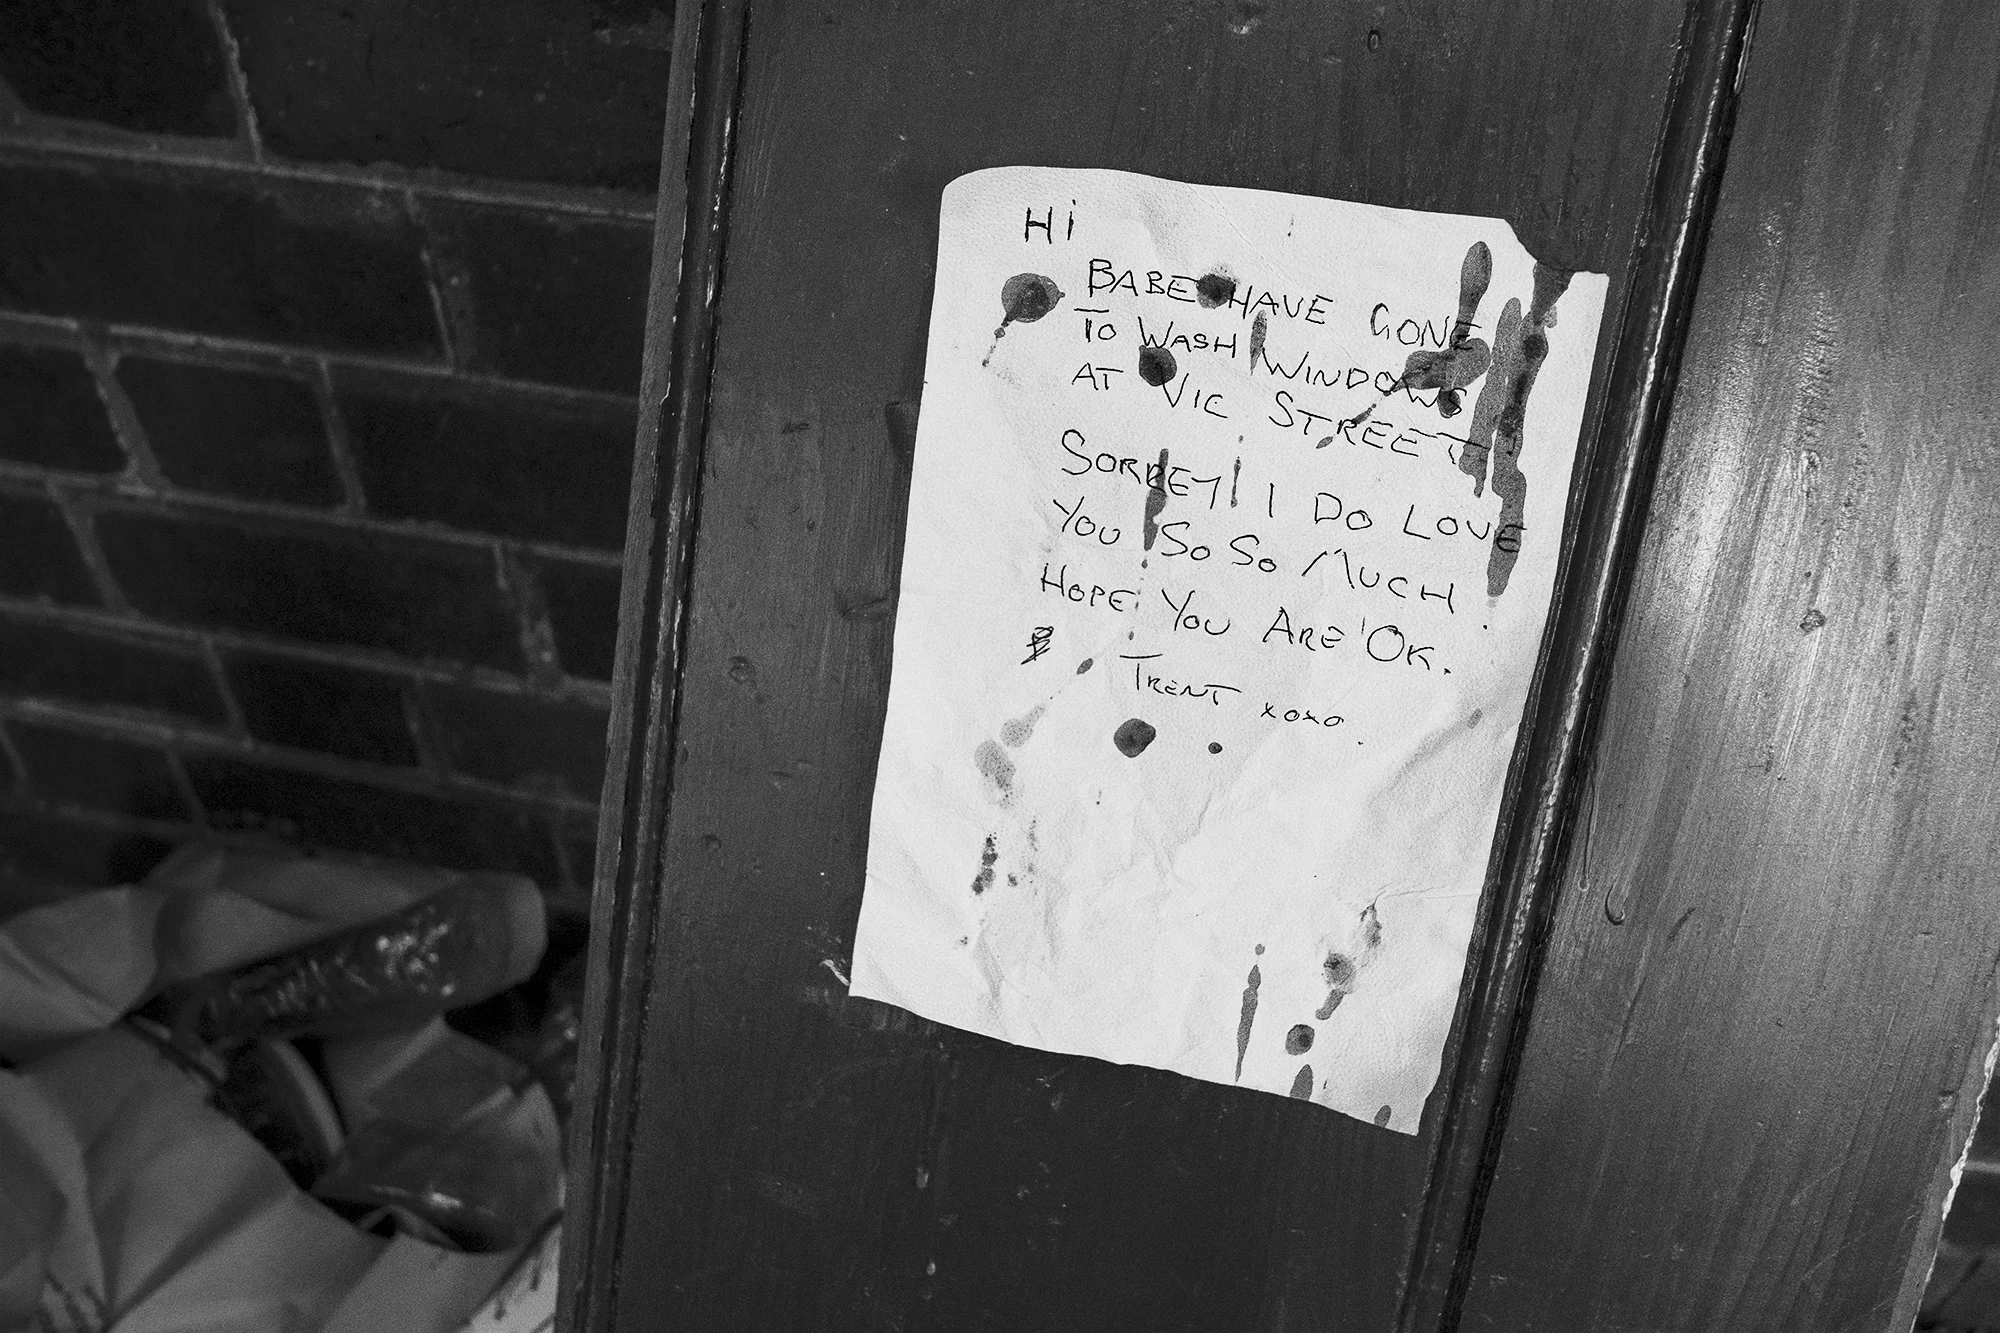 Hi
BABE HAVE GONE
TO WASH WINDOWS
AT VIC STREET
SORREY! I DO LOVE
YOU SO SO MUCH.
HOPE YOU ARE OK.
TRENT xoxo.